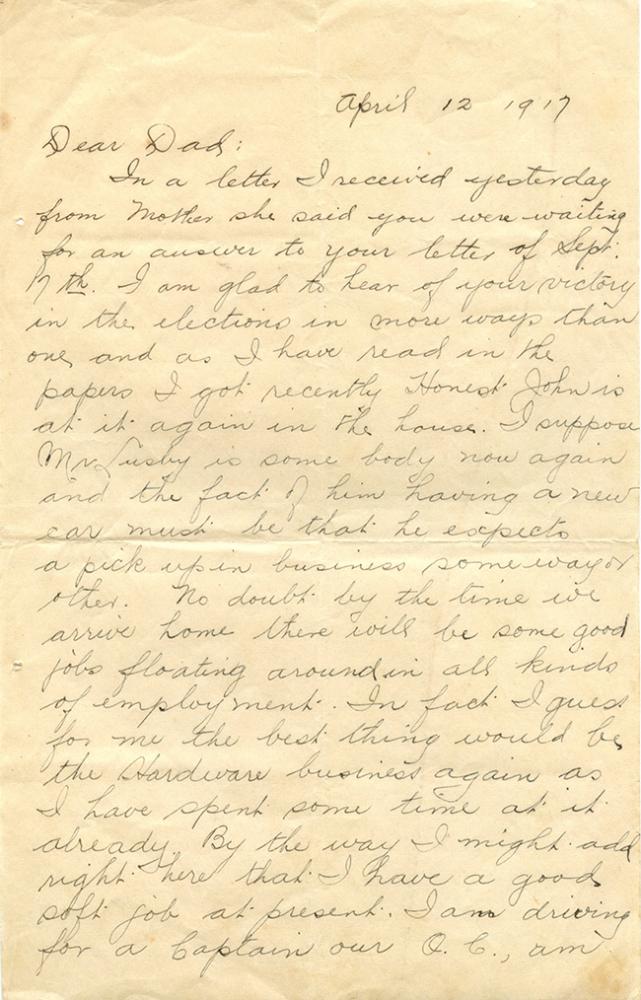 April 12 1917
Dear Dad:
In a letter I received yesterday
from Mother she said you were waiting
for an answer to your letter of Sept.
17th. I am glad to hear of your victory
in the elections in more ways than
one, and as I have read in the
papers I got recently Honest John is
at it again in the house. I suppose
Mr. Lusby is some body now again
and the fact of him having a new
car must be that he expects
a pick up in business some way or
other. No doubt by the time we
arrive home there will be some good
jobs floating around in all kinds
of employment. In fact I guess
for me the best thing would be
the Hardware business again as
I have spent some time at it
already. By the way I might add
right here that I have a good
soft job at present. I am driving
for a Captain our O. C., am